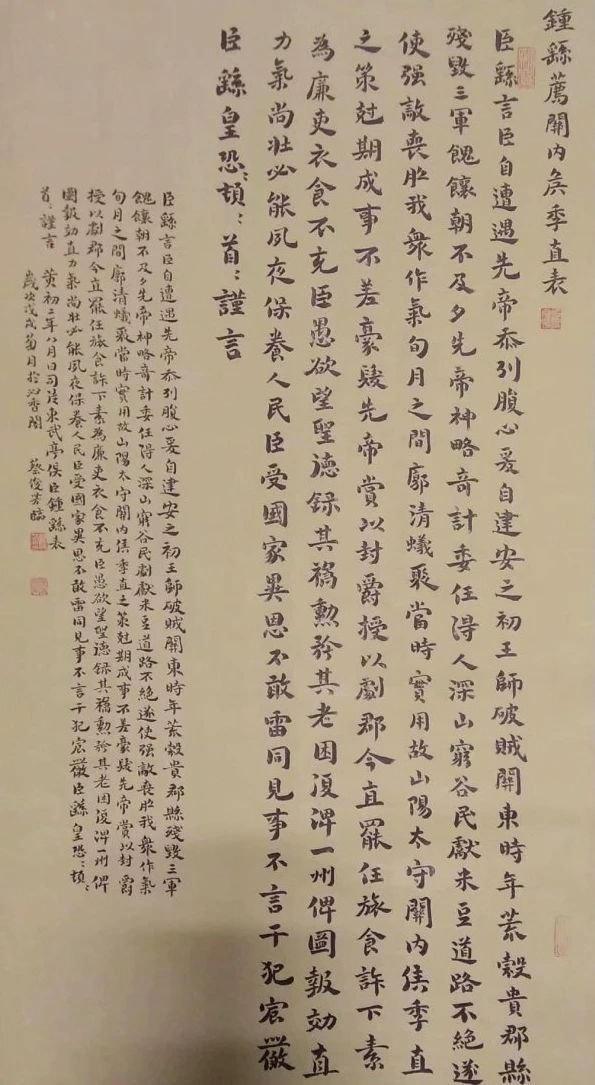 鍾繇薦關內侯季直表
臣繇言臣自遭遇先帝忝列腹心爰自建安之初王師破賊關東時年荒穀貴郡縣
殘毀三軍餽饟朝不及夕先帝神略奇計委任得人深山窮谷民獻米豆道路不絕遂
使强敵喪膽我衆作氣旬月之間廓清蟻聚當時實用故山陽太守關內侯季直
之策尅期成事不差豪髮先帝賞以封爵授以劇郡今直罷任旅食許下素
為廉吏衣食不充臣愚欲望聖德錄其舊勳矜其老困復俾一州俾圖報効直
力氣尚壯必能夙夜保養人民臣受國家異恩不敢雷同見事不言干犯宸嚴
臣繇皇恐：頓：首：謹言
臣繇言臣自遭遇先帝忝列腹心爰自建安之初王師破賊關東時年荒穀貴郡縣殘毀三軍
餽饟朝不及夕先帝神略奇計委任得人深山窮谷民劇獻米豆道路不絕遂使强敵喪膽我衆作氣
旬月之間廓清蟻聚當時實用故山陽太守關內侯季直之策尅期成事不差豪髮先帝賞以封爵
授以劇郡今直罷任旅食許下素為廉吏衣食不充臣愚欲望聖德錄其舊勳矜其老困復俾一州俾
圖報効直力氣尚壯必能夙夜保養人民臣受國家異恩不敢雷同見事不言干犯宸嚴臣繇皇恐：頓：
首：謹言 黃初二年八月日司徒東武亭侯臣鍾繇表
歲次戊戌菊月於沁香閣 蔡俊芳臨